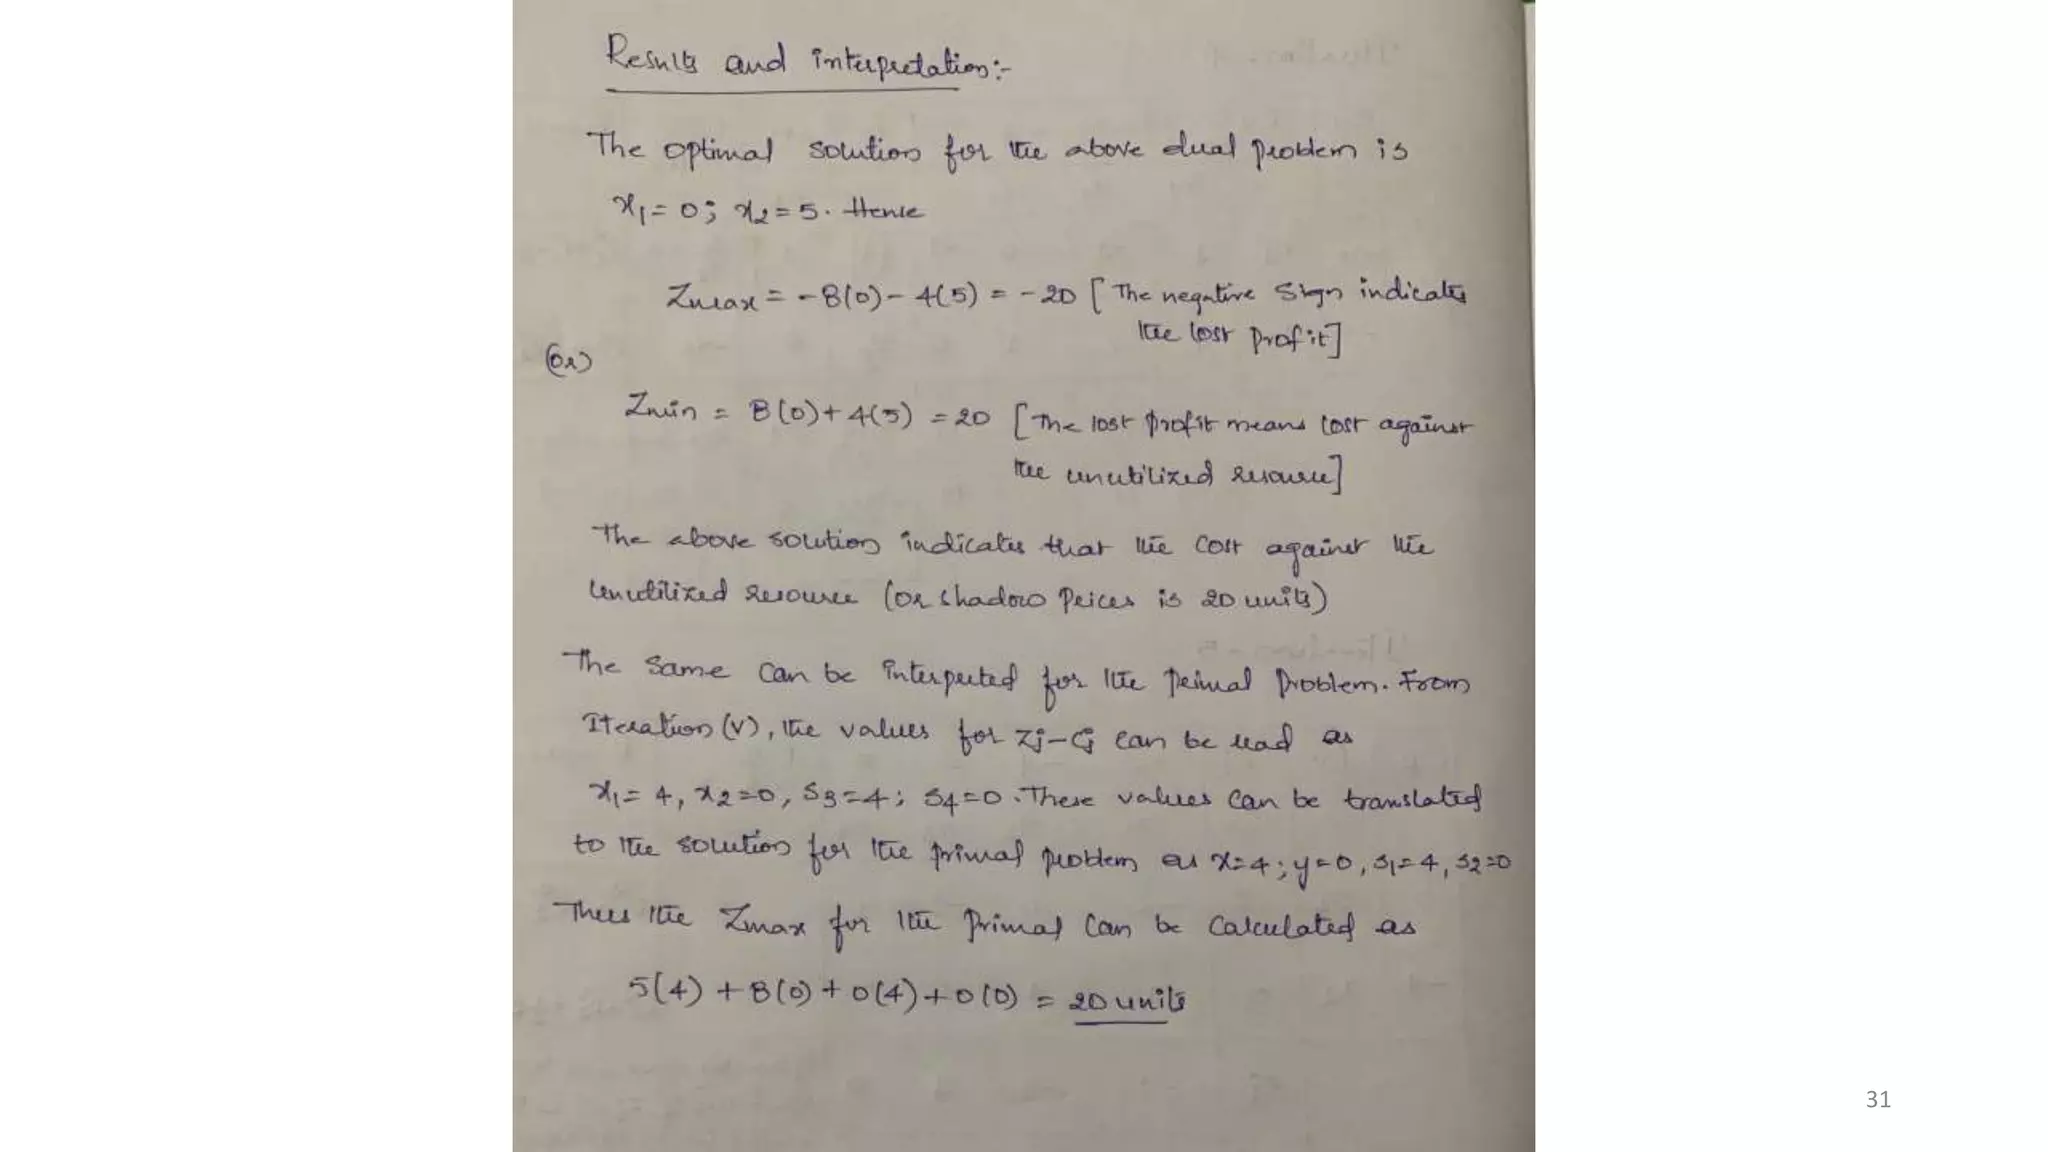 Results and interpretation:-
The optimal solution for the above dual problem is
x1 = 0; x2 = 5. Hence
Zmax = -8(0) - 4(5) = -20 [The negative sign indicates
the lost profit]
(or)
Zmin = 8(0) + 4(5) = 20 [The lost profit means cost against
the unutilized resource]
The above solution indicates that the cost against the
unutilized resource (or shadow prices is 20 units)
The same can be interpreted for the primal problem. From
Iteration (V), the values for Zj-Cj can be read as
x1 = 4, x2 = 0, S3 = 4; S4 = 0. These values can be translated
to the solution for the primal problem as x=4; y=0, S1=4, S2=0
Thus the Zmax for the primal can be calculated as
5(4) + 8(0) + 0(4) + 0(0) = 20 units
31